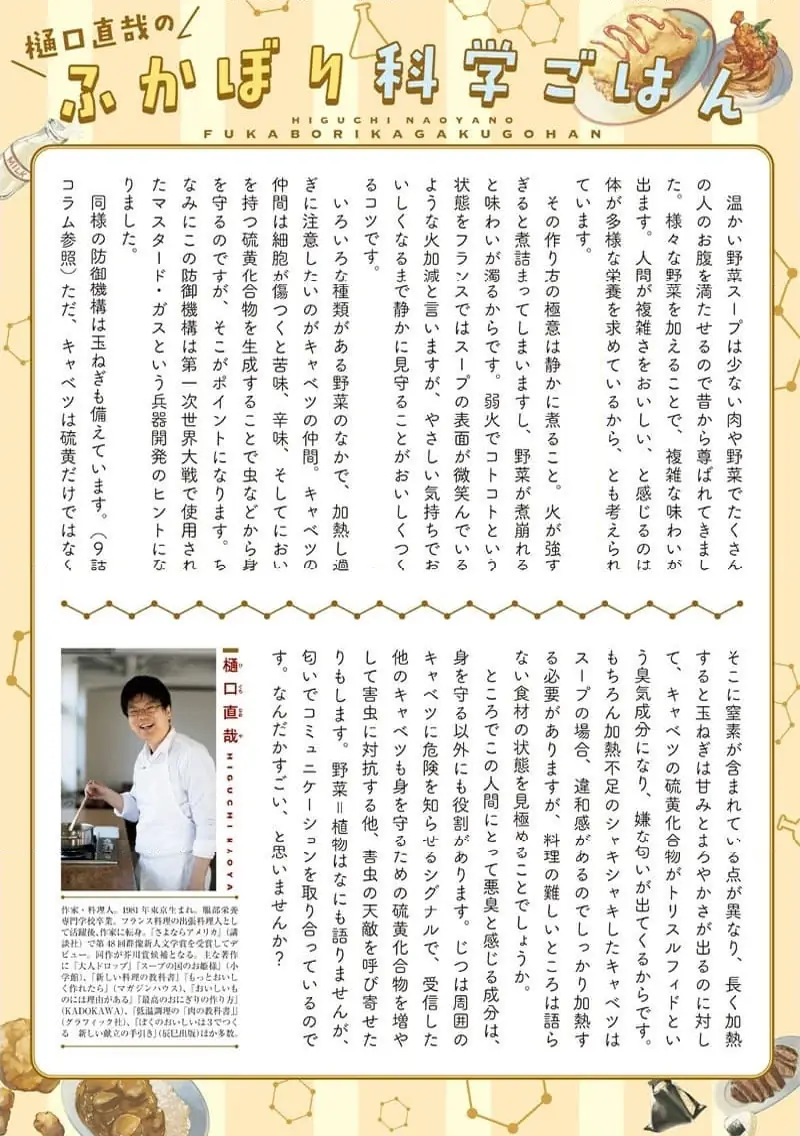 樋口直哉の
ふかぼり科学ごはん
HIGUCHI NAOYANO
FUKABORIKAGAKUGOHAN
MILK
温かい野菜スープは少ない肉や野菜でたくさん
の人のお腹を満たせるので昔から尊ばれてきまし
た。様々な野菜を加えることで、複雑な味わいが
出ます。人間が複雑さをおいしい、と感じるのは
体が多様な栄養を求めているから、とも考えられ
ています。
その作り方の極意は静かに煮ること。火が強す
ぎると煮詰まってしまいますし、野菜が煮崩れる
と味わいが濁るからです。弱火でコトコトという
状態をフランスではスープの表面が微笑んでいる
ような火加減と言いますが、やさしい気持ちでお
いしくなるまで静かに見守ることがおいしくつく
るコツです。
いろいろな種類がある野菜のなかで、加熱し過
ぎに注意したいのがキャベツの仲間。キャベツの
仲間は細胞が傷つくと苦味、辛味、そしてにおい
を持つ硫黄化合物を生成することで虫などから身
を守るのですが、そこがポイントになります。ち
なみにこの防御機構は第一次世界大戦で使用され
たマスタード・ガスという兵器開発のヒントにな
りました。
同様の防御機構は玉ねぎも備えています。（9話
コラム参照）ただ、キャベツは硫黄だけではなく
そこに窒素が含まれている点が異なり、長く加熱
すると玉ねぎは甘みとまろやかさが出るのに対し
て、キャベツの硫黄化合物がトリスルフィドとい
う臭気成分になり、嫌な匂いが出てくるからです。
もちろん加熱不足のシャキシャキしたキャベツは
スープの場合、違和感があるのでしっかり加熱す
る必要がありますが、料理の難しいところは語ら
ない食材の状態を見極めることでしょうか。
ところでこの人間にとって悪臭と感じる成分は、
身を守る以外にも役割があります。じつは周囲の
キャベツに危険を知らせるシグナルで、受信した
他のキャベツも身を守るための硫黄化合物を増や
して害虫に対抗する他、害虫の天敵を呼び寄せた
りもします。野菜＝植物はなにも語りませんが、
匂いでコミュニケーションを取り合っているので
す。なんだかすごい、と思いませんか？
樋口直哉
ひぐちなおや
HIGUCHI NAOYA
作家・料理人。1981年東京生まれ。服部栄養
専門学校卒業。フランス料理の出張料理人とし
て活躍後、作家に転身。『さよならアメリカ』（講
談社）で第48回群像新人文学賞を受賞してデ
ビュー。同作が芥川賞候補となる。主な著作
に『大人ドロップ』『スープの国のお姫様』（小
学館）、『新しい料理の教科書』『もっとおいし
く作れたら』（マガジンハウス）、『おいしいも
のには理由がある』『最高のおにぎりの作り方』
（KADOKAWA）、『低温調理の「肉の教科書』』
（グラフィック社）、『ぼくのおいしいは3でつく
る　新しい献立の手引き』（辰巳出版）ほか多数。